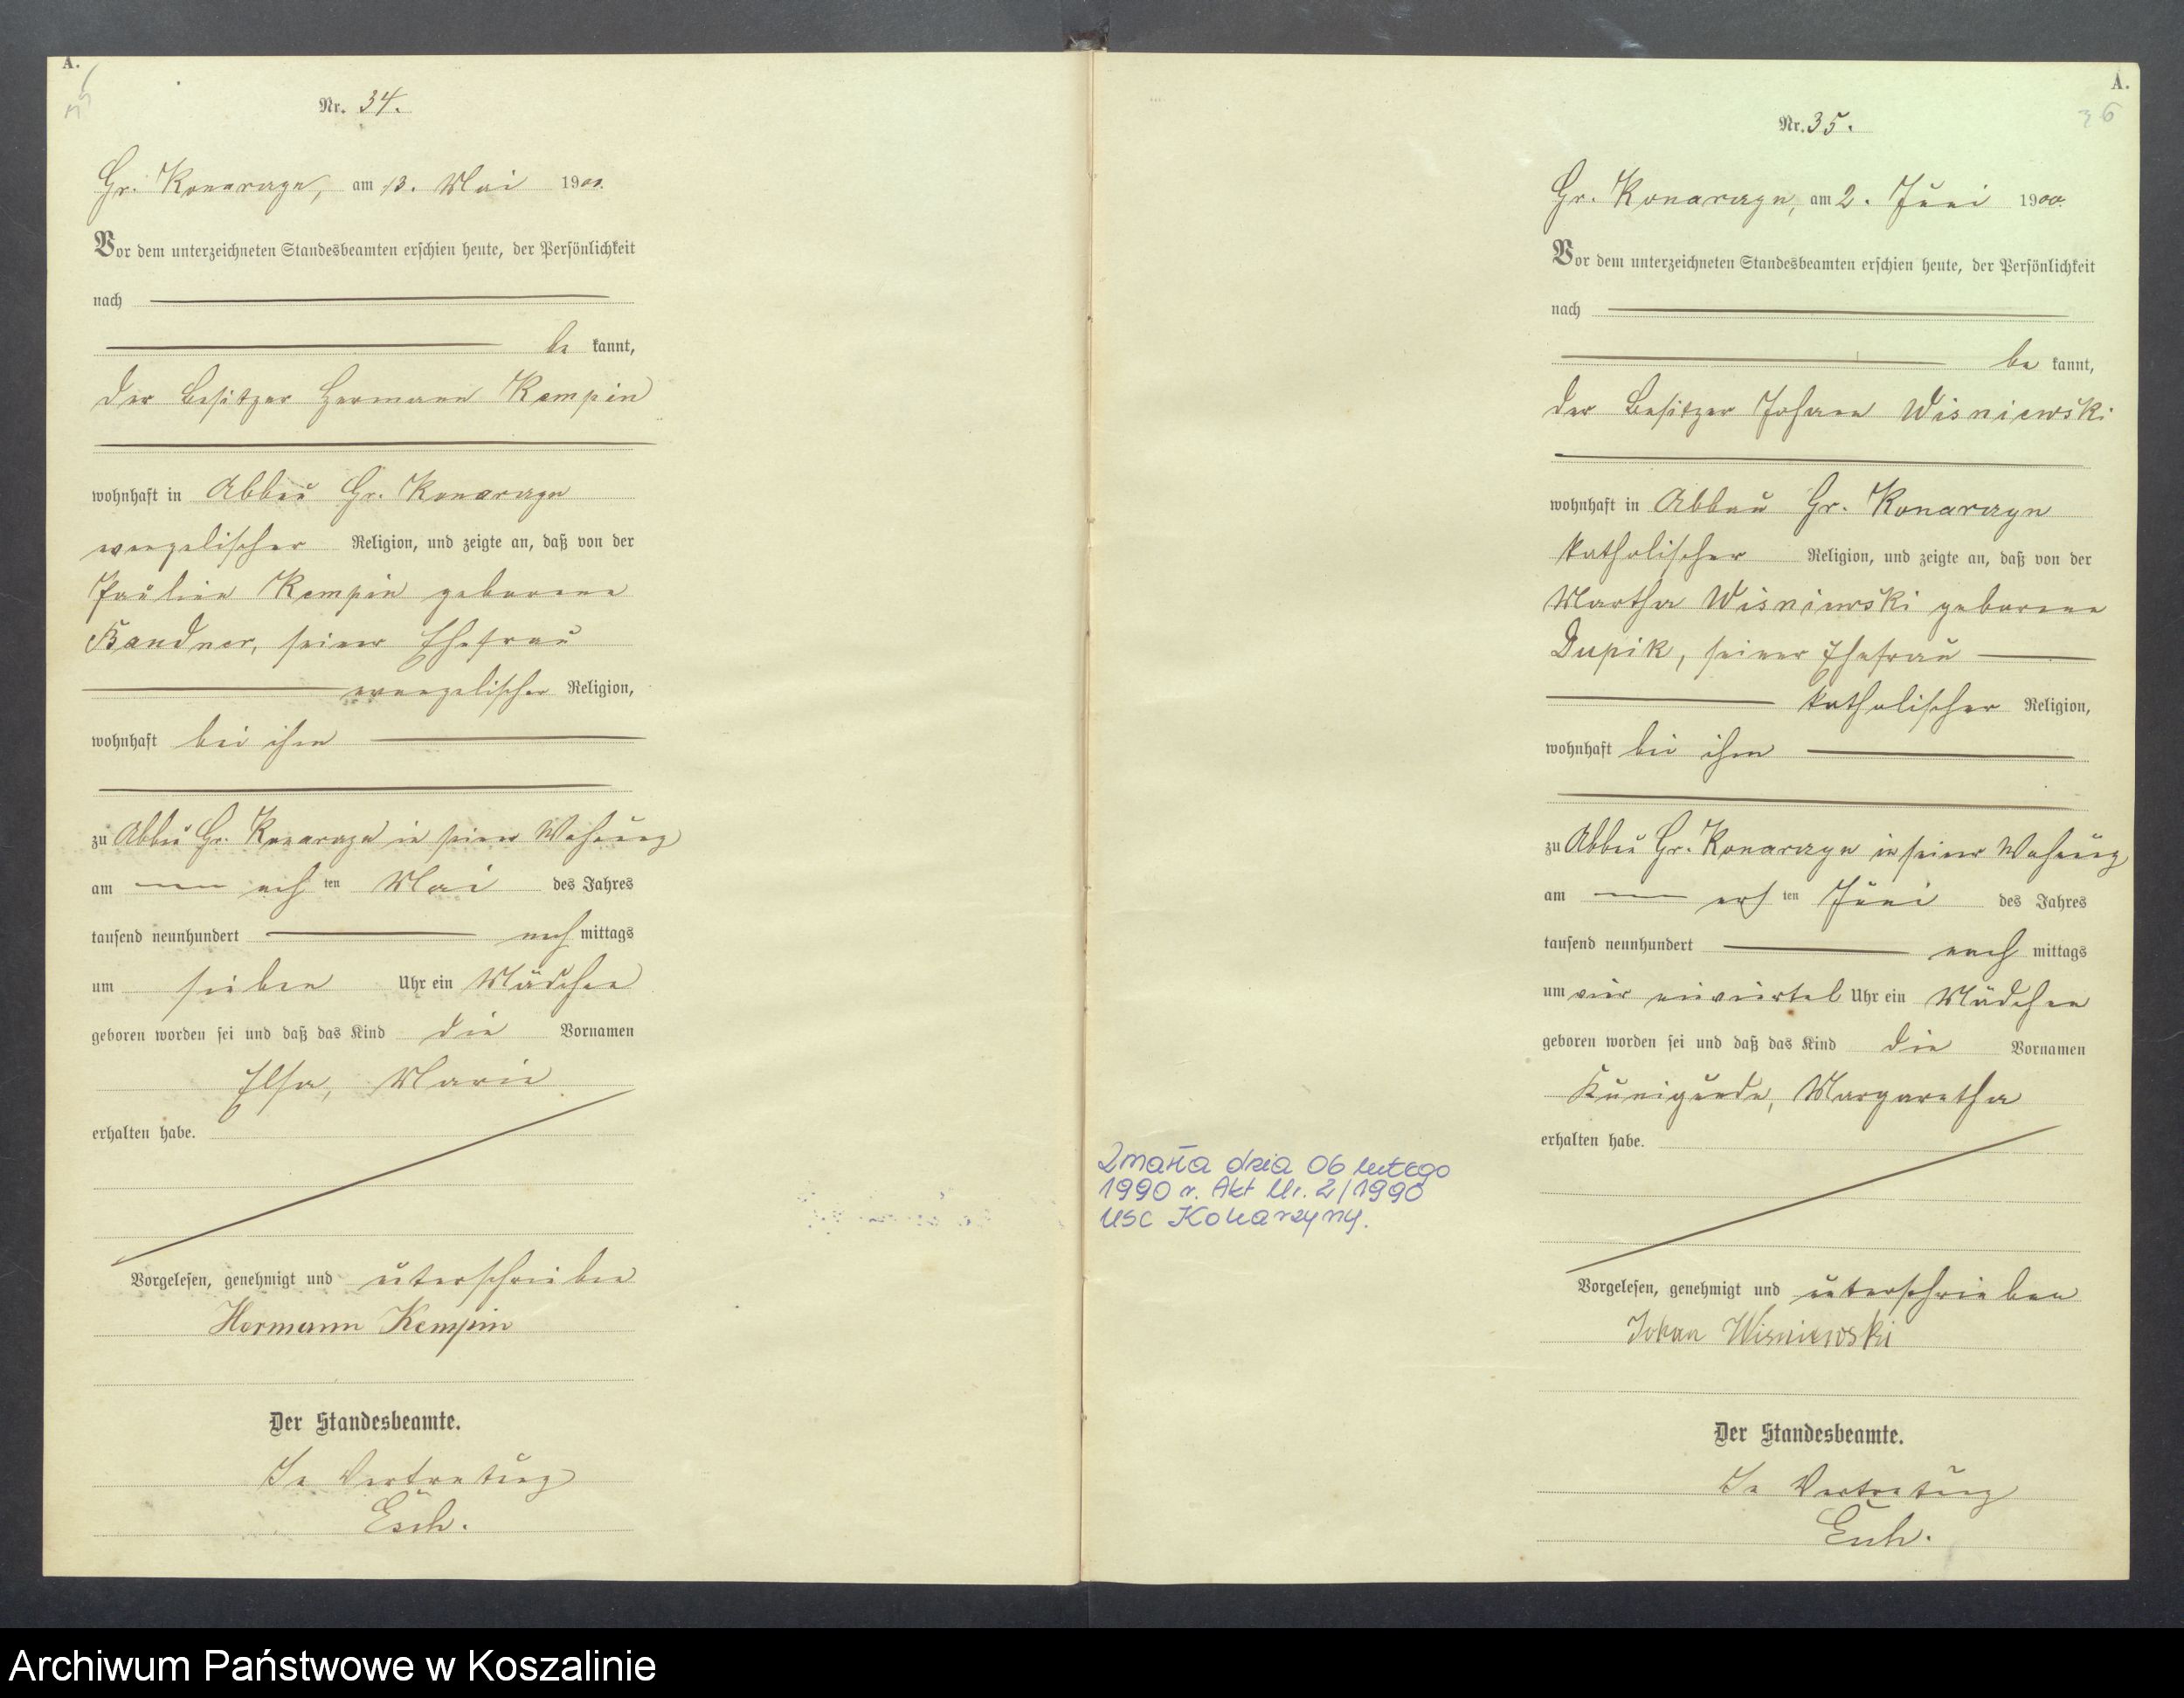 A.
Nr. 34.
Gr. Konarzyn, am 13. Mai 1900.
Vor dem unterzeichneten Standesbeamten erschien heute, der Persönlichkeit
nach
be kannt,
der Besitzer Hermann Kempin
wohnhaft in Abbau Gr. Konarzyn
evangelischer Religion, und zeigte an, daß von der
Pauline Kempin geborene
Bandner, seiner Ehefrau
evangelischer Religion,
wohnhaft bei ihm
zu Abbau Gr. Konarzyn in seiner Wohnung
am ach ten Mai des Jahres
tausend neunhundert nach mittags
um sieben Uhr ein Mädchen
geboren worden sei und daß das Kind die Vornamen
Elsa, Marie
erhalten habe.
Vorgelesen, genehmigt und unterschrieben
Hermann Kempin
Der Standesbeamte.
In Vertretung
A.
36
Nr. 35.
Gr. Konarzyn, am 2. Juni 1900.
Vor dem unterzeichneten Standesbeamten erschien heute, der Persönlichkeit
nach
be kannt,
der Besitzer Johann Wisniewski
wohnhaft in Abbau Gr. Konarzyn
katholischer Religion, und zeigte an, daß von der
Martha Wisniewski geborene
Dupik, seiner Ehefrau
katholischer Religion,
wohnhaft bei ihm
zu Abbau Gr. Konarzyn in seiner Wohnung
am ers ten Juni des Jahres
tausend neunhundert nach mittags
um vier einviertel Uhr ein Mädchen
geboren worden sei und daß das Kind die Vornamen
Kunigunde, Margaretha
erhalten habe.
Zmarła dnia 06 lutego
1990 r. Akt Nr. 2/1990
USC Konarzyny.
Vorgelesen, genehmigt und unterschrieben
Johan Wisniewski
Der Standesbeamte.
In Vertretung
Archiwum Państwowe w Koszalinie